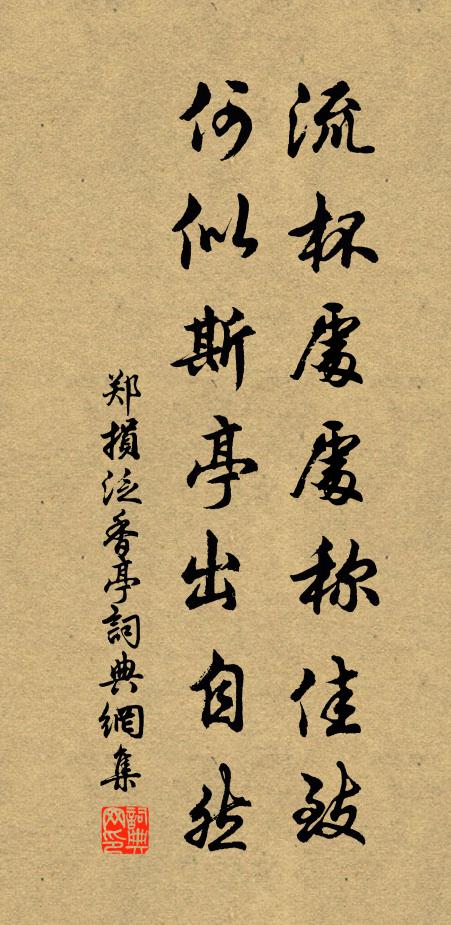 流杯處處称佳致
何似斯亭出自然
郑損泛香亭詞典網集
詞典网印